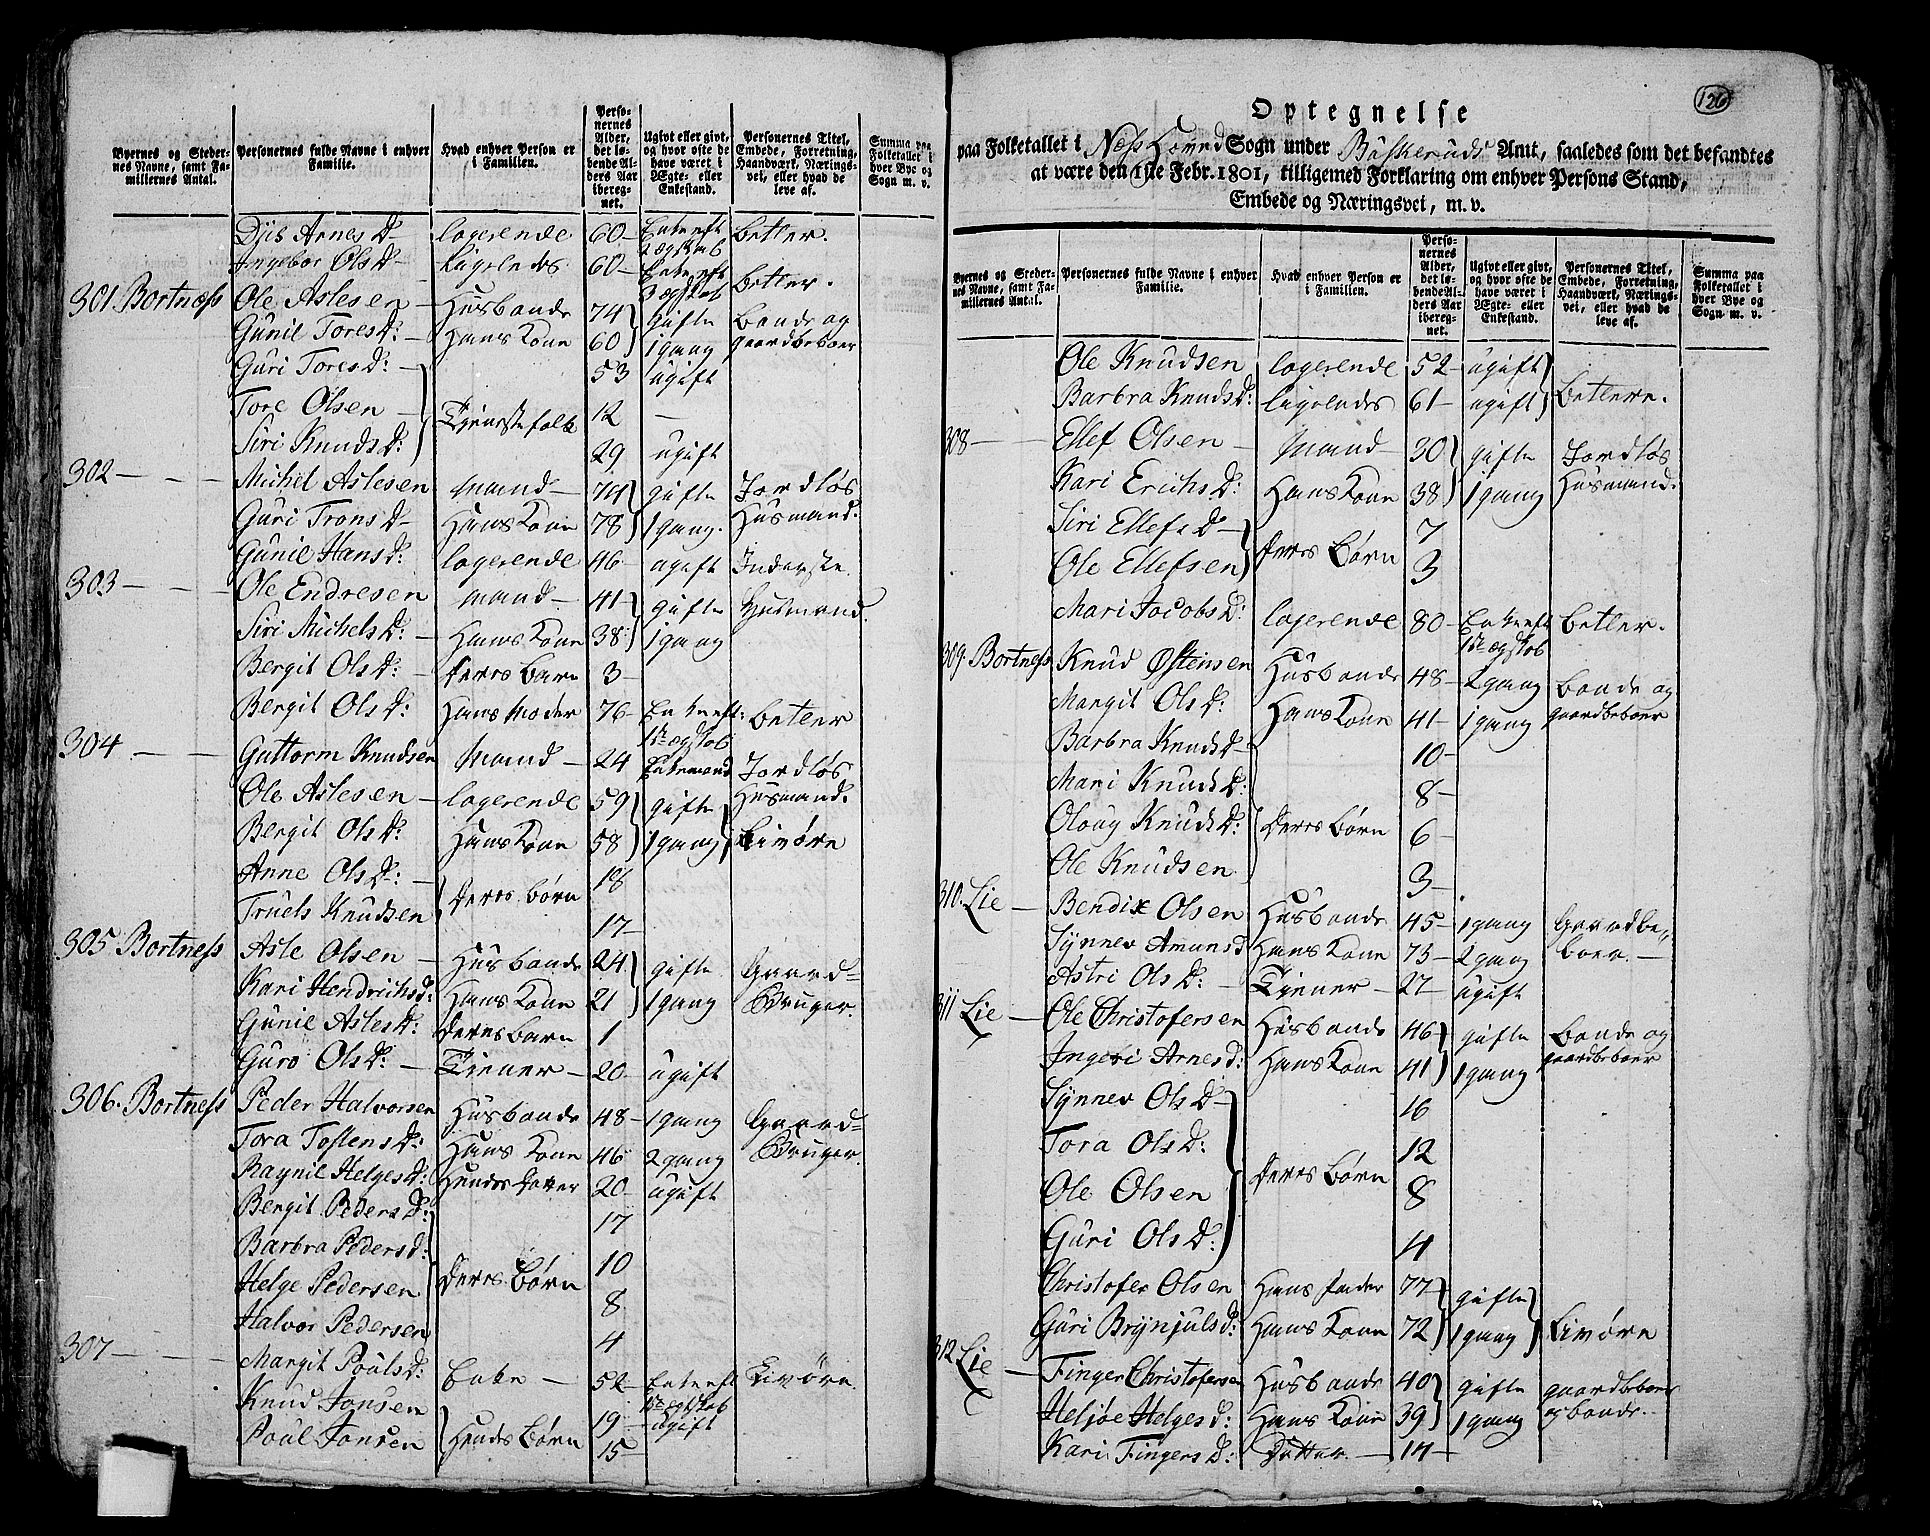 Byernes og Steder-
nes Navne, samt Fa-
milliernes Antal.
Personernes fulde Navne i enhver
Familie.
Hvad enhver Person er
i Familien.
Perso-
nernes
Alder,
det lø-
bende Al-
ders Aar
ibereg-
net.
Ugivt eller givt,
og hvor ofte de
have været i
Ægte- eller
Enkestand.
Personernes Titel,
Embede, Forretning,
Haandværk, Nærings-
vei, eller hvad de
leve af.
Summa paa
Folketallet i
hver Bye og
Sogn m. v.
Arnes D- logerende 60- Enke eft 2 ægskab betler.
Ingebor Ols D- Ligeledes 60- Enke eft 3 ægskab betler.
301 Bortness Ole Aslesen - Husbonde 74 gifte bonde og
Gunil Tores D: - Hans Kone 60 1 gang gaardbeboer
Guri Tores D: - 53 ugift
Tore Olsen - Tjenestefolk 12 -
Siri Knuds D: 29 ugift
302 - - - Michel Aslesen Mand - 74 gifte Jordløs
Guri Trons D- Hans Kone 78 1 gang. Husmand.
Gunil Hans D: logerende 46- ugift Inderste.
303 - - - Ole Endresen Mand - 41 gifte Husmand.
Siri Michels D: - Hans Kone 38 1 gang
Bergit Ols D: - deres Barn 3-
Bergit Ols D: Hans Moder 76- Enke eft: 1te ægskab betler
304 - - Guttorm Knudsen Mand - 24 Enkemand Jordløs
Ole Aslesen - logerende 59 gifte Husmand.
Bergit Ols D: Hans Kone 58 1 gang Livøre
Anne Ols D: - deres børn 18
Truels Knudsen 17-
305 Bortness Asle Olsen - Husbonde 24 gifte Gaard=
Kari Hendrichs D: Hans Kone 21 1 gang Bruger.
Gunil Asles D: deres barn 1
Guro Ols D: - Tiener - 20- ugift
306. Bortness Peder Halvorsen Husbonde 48- 1 gang Gaard=
Tora Tostens D: Hans Kone 46 2 gang Bruger.
Ragnil Helges D: Hendes Datter 20- ugift
Bergit Peders D: 17
Barbra Peders D: 10
Helge Pedersen deres Børn 8
Halvor Pedersen 4
307 - - - Margit Pouls D: Enke - 52- Enke eft 1te ægskab Livøre.
Knud Jonsen 19- ugift
Poul Jonsen Hendes Børn 15-
126
Optegnelse
paa Folketallet i Næss Hoved Sogn under Buskeruds Amt, saaledes som det befandtes
at være den 1ste Febr. 1801, tilligemed Forklaring om enhver Persons Stand,
Embede og Næringsvei, m. v.
Byernes og Steder-
nes Navne, samt Fa-
milliernes Antal.
Personernes fulde Navne i enhver
Familie.
Hvad enhver Person er
i Familien.
Perso-
nernes
Alder,
det lø-
bende Al-
ders Aar
ibereg-
net.
Ugivt eller givt,
og hvor ofte de
have været i
Ægte- eller
Enkestand.
Personernes Titel,
Embede, Forretning,
Haandværk, Nærings-
vei, eller hvad de
leve af.
Summa paa
Folketallet i
hver Bye og
Sogn m. v.
Ole Knudsen logerende 52- ugift
Barbra Knuds D: ligeledes 61- ugift betlere.
308 - - Ellef Olsen - Mand - 30 gifte Jordløs
Kari Erichs D: Hans Kone 38 1 gang Husmand.
Siri Ellefs D- 7
Ole Ellefsen deres Børn 3
Mari Jacobs D: logerende 80- Enke eft 1te ægskab betler.
309. Bortness Knud Østensen Husbonde 48- 2 gang bonde og
Margit Ols D: Hans Kone 41- 1 gang gaardbeboer
Barbra Knuds D- 10-
Mari Knuds D: 8-
Oloug Knuds D: deres børn 6-
Ole Knudsen 3-
310. Lie - Bendix Olsen Husbonde 45- 1 gang Gaardbe-
Synnev Amunds D Hans Kone 73- 2 gang boer. -
Astri Ols D: - Tiener - 27- ugift
311 Lie - Ole Christofersen Husbonde 46 gifte bonde og
Ingeri Arnes D: Hans Kone 41 1 gang gaardbeboer
Synnev Ols D- 16
Tora Ols D: 12
Ole Olsen deres Børn 8
Guri Ols D: 4
Christofer Olsen Hans Fader 77 gifte
Guri Brynjuls D: Hans Kone 72 1 gang Livøre
312 Lie - Finger Christofersen Husbonde 40 gifte gaardbeboer
Heljøe Helges D: Hans Kone 39 1 gang og bonde.
Kari Fingers D: Datter - 14-